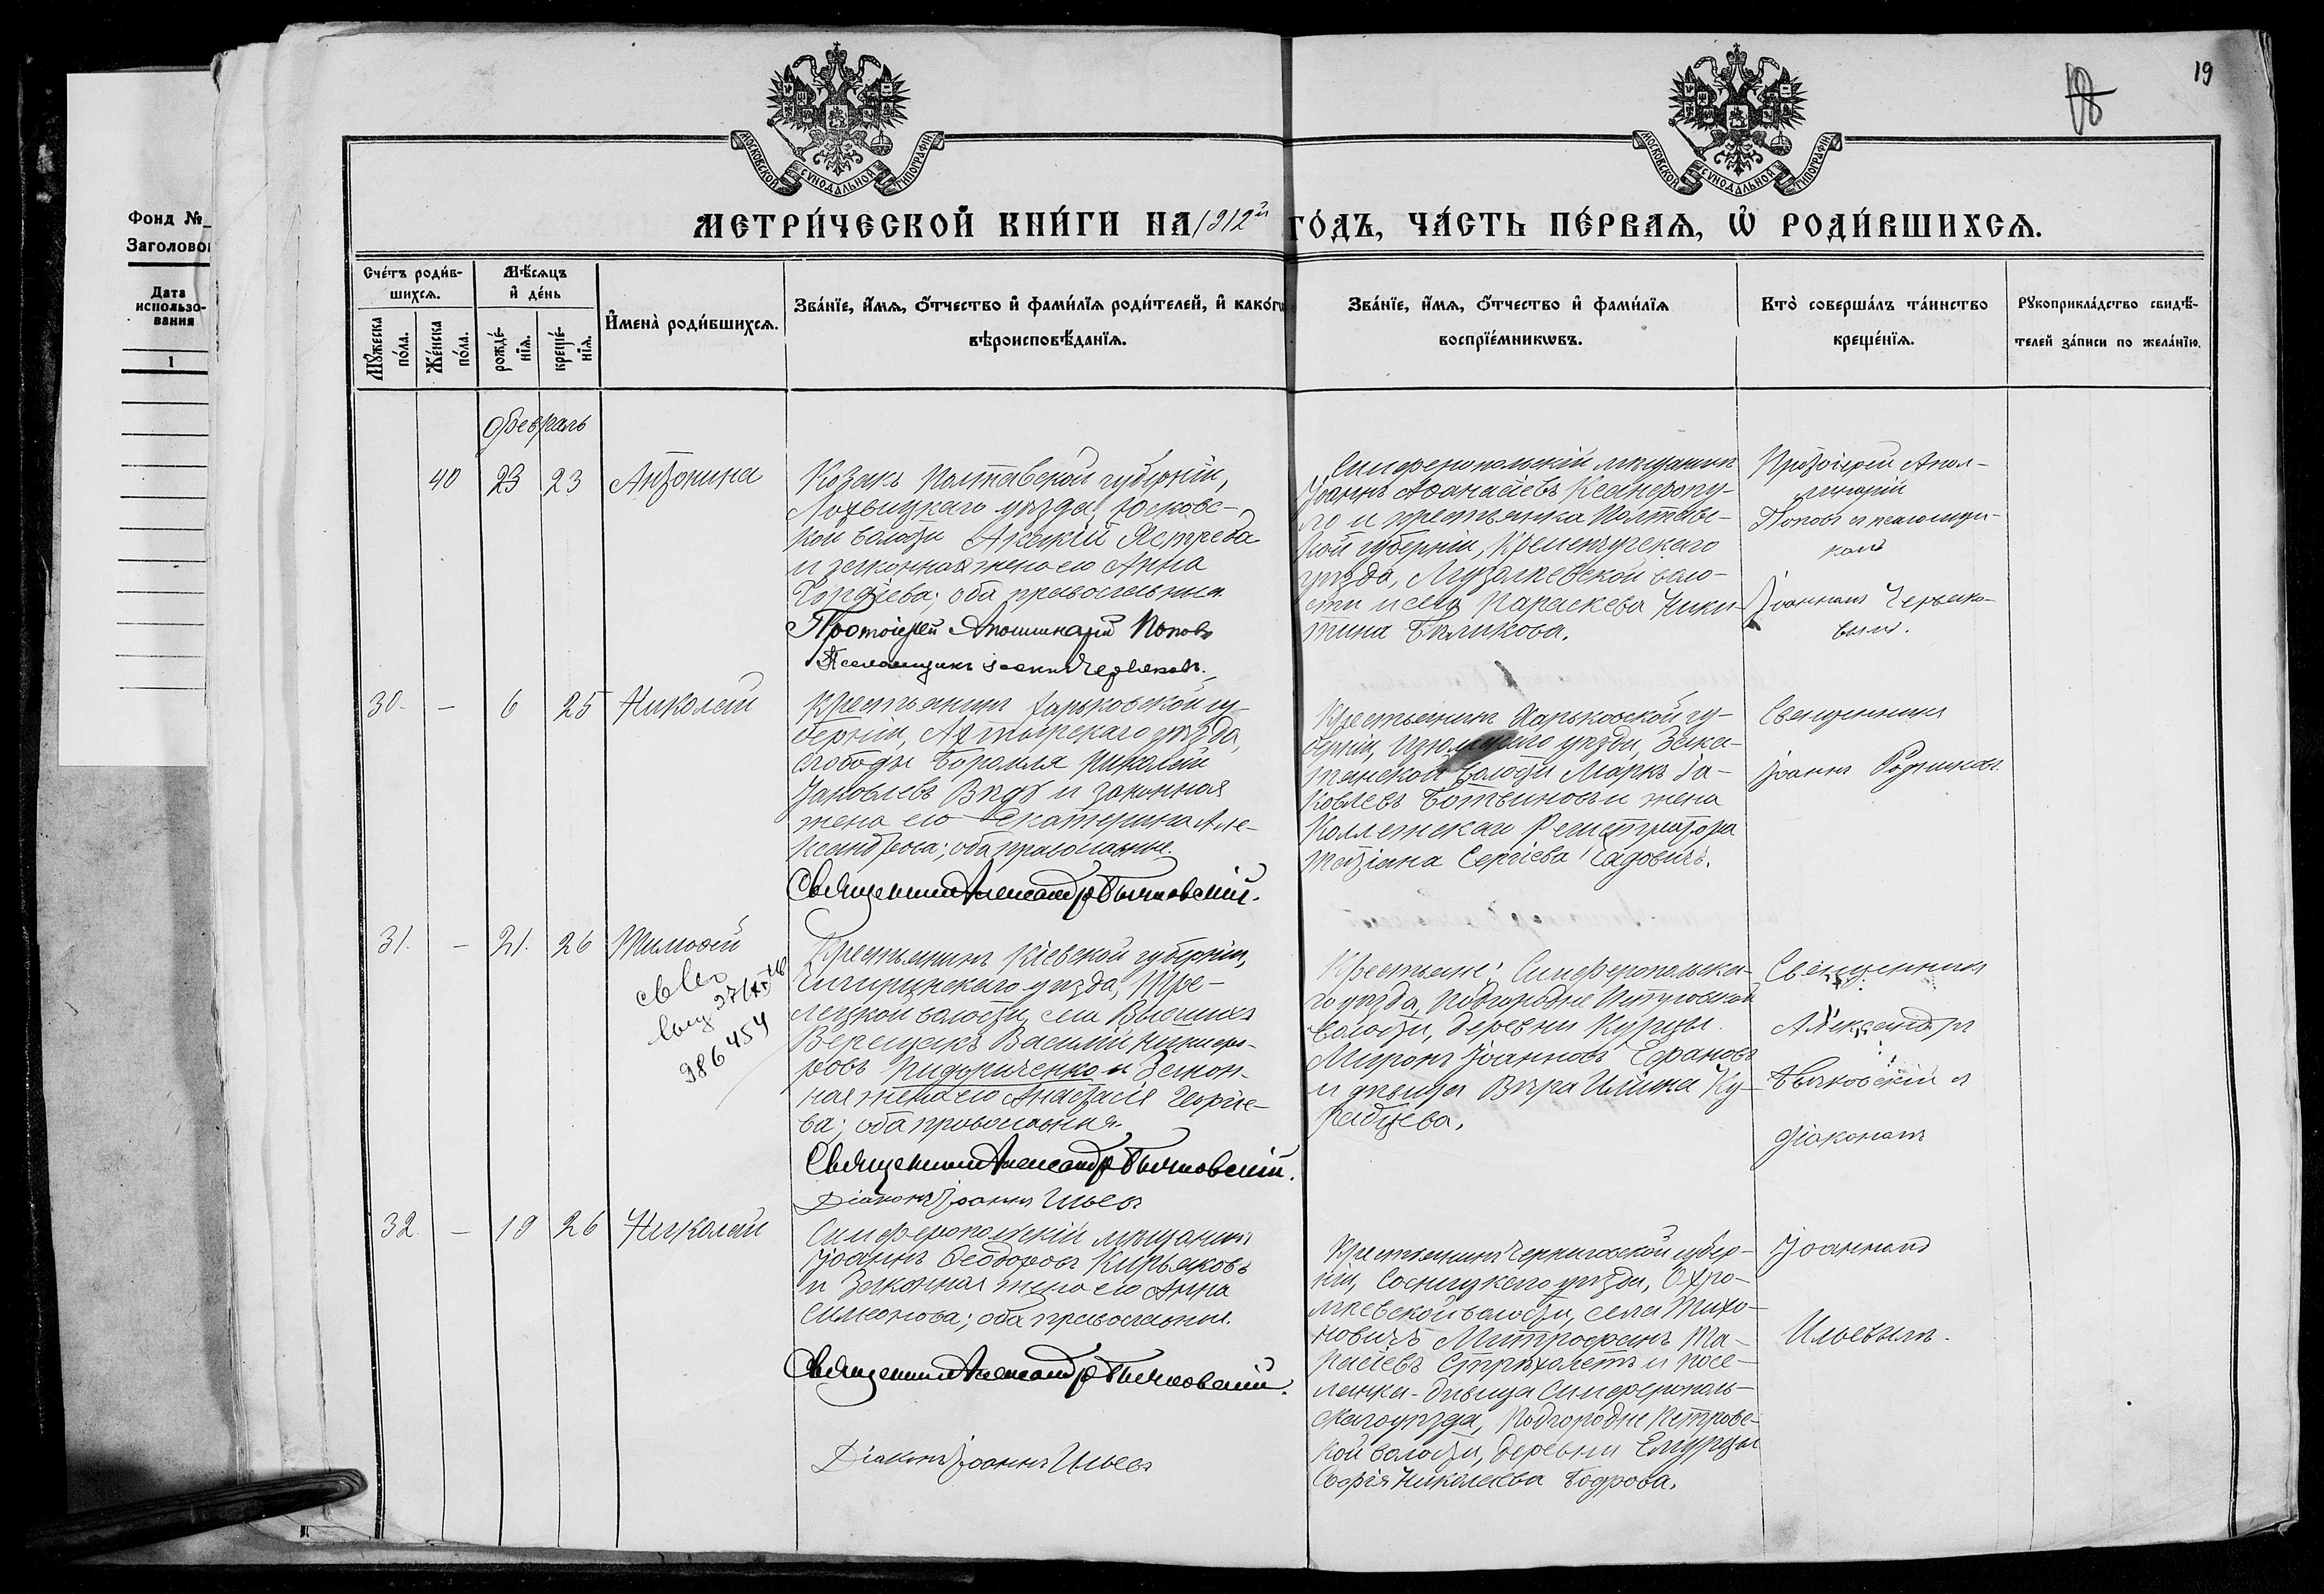 19
Фонд №
Заголово
Дата
использо-
вания
1
МОСКОВСКОЙ СѴНОДАЛЬНОЙ ТИПОГРАФІИ
МОСКОВСКОЙ СѴНОДАЛЬНОЙ ТИПОГРАФІИ
МЕТРИ́ЧЕСКОЙ КНИ́ГИ НА 1912й ГО́ДЪ, ЧА́СТЬ ПЕ́РВАѦ, Ѡ҆ РОДИ́ВШИХСѦ.
Сче́тъ роди́в-
шихсѧ.
Мꙋ́жеска
по́ла.
Же́нска
по́ла.
Мѣ́сѧцъ
и҆ де́нь
рожде́-
нїѧ.
креще́-
нїѧ.
И҆мена̀ роди́вшихсѧ.
Зва́нїе, и҆́мѧ, ѻ҆́тчество и҆ фами́лїѧ роди́телей, и҆ како́гѡ
вѣроисповѣ́данїѧ.
Зва́нїе, и҆́мѧ, ѻ҆́тчество и҆ фами́лїѧ
воспрїе́мникѡвъ.
Кто̀ соверша́лъ та́инство
креще́нїѧ.
Рꙋкоприкла́дство свидѣ́-
телей за́писи по жела́нїю.
Февраль
40 23 23 Антонина
Козакъ Полтавской губерніи,
Лохвицкаго уѣзда, Юсковс-
кой волости Акакій Ястреба
и законная жена его Анна
Гордіева; оба православные
Протоіерей Аполлинарій Поповъ
Псаломщикъ Іоаннъ Червяковъ.
Симферопольскій мѣщанинъ
Іоаннъ Аѳанасіевъ
и крестьянка Полтавс-
кой губерніи, Кременчугскаго
уѣзда, воло-
сти Параскева Ники-
тина Бѣликова.
Протоіерей Апол-
линарій
Поповъ и псаломщи-
комъ
Іоанномъ Червяко-
вымъ.
30. – 6 25 Николай
Крестьянинъ Харьковской гу-
берніи, Ахтырскаго уѣзда,
слободы Боромля Николай
Іаковлевъ и законная
жена его Екатерина Але-
ксандрова; оба православные.
Священникъ Александръ
Крестьянинъ Харьковской гу-
берніи, Изюмскаго уѣзда,
волости Маркъ Іа-
ковлевъ Ботвиновъ и жена
Коллежскаго Регистратора
Татіана Сергіева
Священникъ
Іоаннъ
31. – 21. 26 Тимоѳей
986454
Крестьянинъ Кіевской губерніи,
Чигиринскаго уѣзда, Тре-
лесской волости, села
Верещакъ Василій Никифо-
ровъ Пидориченко и закон-
ная жена его Анастасія Георгіе-
ва; оба православные.
Священникъ Александръ
Діаконъ Іоаннъ Ильевъ
Крестьяне: Симферопольска-
го уѣзда, Подгородне Петровской
волости, деревни Курцы
Миронъ Іоанновъ
и дѣвица Вѣра Ильина
Священникъ
Александръ
и
діакономъ
32 – 19 26 Николай
Симферопольскій мѣщанинъ
Іоаннъ Ѳеодоровъ Кирьяковъ
и законная жена его Анна
Симеонова; оба православные.
Священникъ Александръ
Діаконъ Іоаннъ Ильевъ
Крестьянинъ Черниговской губер-
ніи, Сосницкаго уѣзда, Охра-
міевской волости, села Тихо-
новичъ Митрофанъ Та-
расіевъ и посе-
лянка-дѣвица Симферополь-
скаго уѣзда, Подгородне Петровс-
кой волости, деревни
Софія Николаева Бодрова.
Іоанномъ
Ильевымъ.